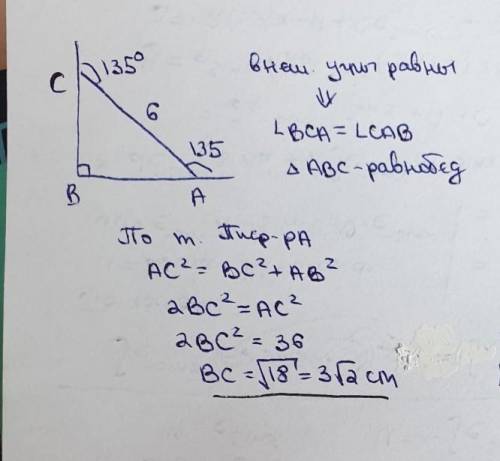 C 135°
6
135
B A
внеш. углы равны
⇓
∠BCA = ∠CAB
△ABC - равнобед
По т. Пиф-ра
AC² = BC² + AB²
2BC² = AC²
2BC² = 36
BC = √18 = 3√2 cm